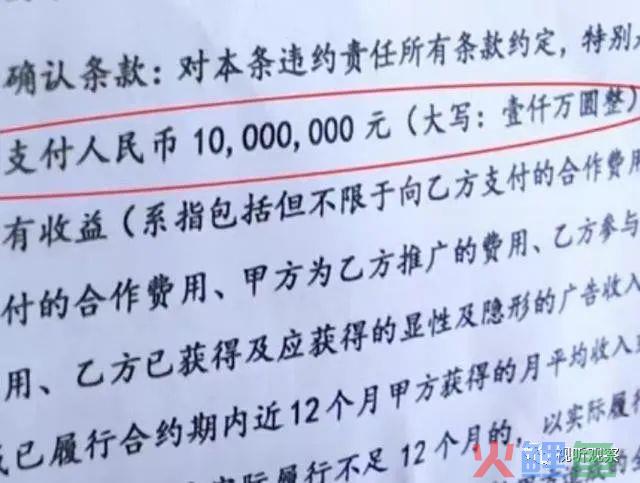 确认条款：对本条违约责任所有条款约定，特别
支付人民币 10,000,000 元（大写：壹仟万圆整）
有收益（系指包括但不限于向乙方支付的合作费用
付的合作费用、甲方为乙方推广的费用、乙方参与
用、乙方已获得及应获得的显性及隐形的广告收入
已履行合约期内近12个月甲方获得的月平均收入
实际履行不足 12 个月的，以实际履行
视听观察
火鲤鱼